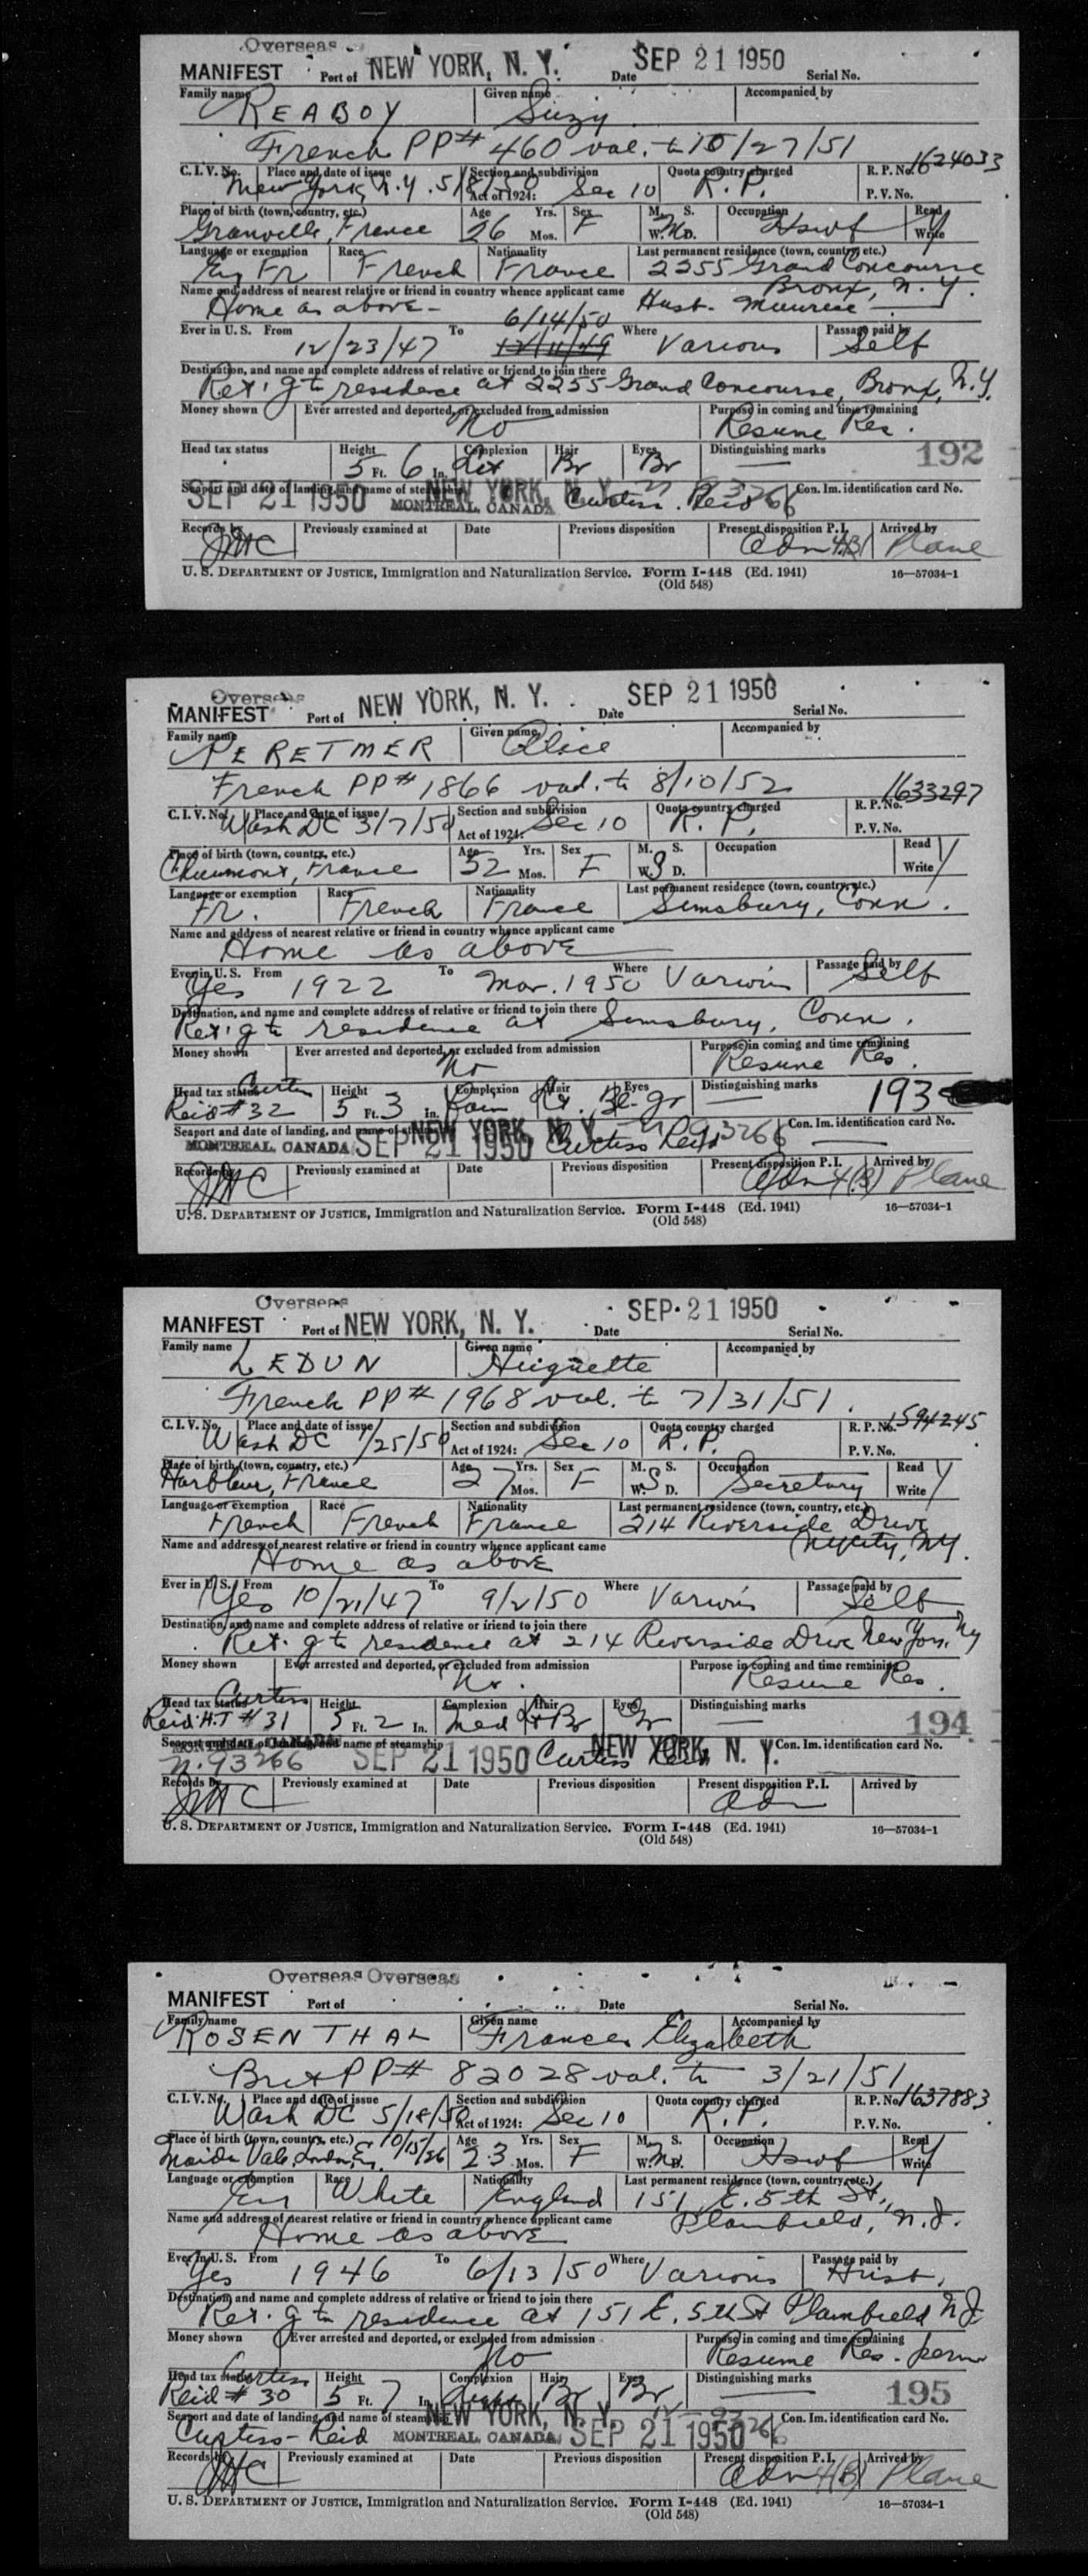 Overseas
MANIFEST Port of NEW YORK, N. Y. Date SEP 21 1950 Serial No.
Family name REABOY Given name Suzy Accompanied by
French PP# 460 val. to 10/27/51
C. I. V. No. Place and date of issue New York, N.Y. Section and subdivision Act of 1924: Sec 10 Quota country charged R.P. R. P. No. 1624033
P. V. No.
Place of birth (town, country, etc.) Granville, France Age 26 Yrs. Mos. Sex F M. S. W. D. M Occupation Hswf Read Write Y
Language or exemption Eng Fr Race French Nationality France Last permanent residence (town, country, etc.) 2255 Grand Concourse
Bronx, N.Y.
Name and address of nearest relative or friend in country whence applicant came Home as above - Husb. Maurice
Ever in U. S. From 12/23/47 To 6/14/50 12/11/49 Where Various Passage paid by Self
Destination, and name and complete address of relative or friend to join there
Ret'g to residence at 2255 Grand Concourse, Bronx, N.Y.
Money shown Ever arrested and deported, or excluded from admission No Purpose in coming and time remaining Resume Res.
Head tax status Height 5 Ft. 6 In. Complexion Hair Br Eyes Br Distinguishing marks — 192
Seaport and date of landing, and name of steamship SEP 21 1950 NEW YORK, N. Y. MONTREAL, CANADA Curtiss Reid Con. Im. identification card No.
Records by JMC Previously examined at Date Previous disposition Present disposition P. I. Adm 4(B) Arrived by Plane
U. S. DEPARTMENT OF JUSTICE, Immigration and Naturalization Service. Form I-448 (Ed. 1941) 16—57034-1
(Old 548)
Overseas
MANIFEST Port of NEW YORK, N. Y. Date SEP 21 1950 Serial No.
Family name PERETMER Given name Alice Accompanied by
French PP# 1866 val. to 8/10/52
C. I. V. No. Place and date of issue Wash DC 3/7/50 Section and subdivision Act of 1924: Sec 10 Quota country charged R.P. R. P. No. 1633297
P. V. No.
Place of birth (town, country, etc.) Chaumont, France Age 52 Yrs. Mos. Sex F M. S. W. D. S Occupation Read Write Y
Language or exemption Fr. Race French Nationality France Last permanent residence (town, country, etc.) Simsbury, Conn.
Name and address of nearest relative or friend in country whence applicant came
Home as above
Ever in U. S. Yes From 1922 To Mar. 1950 Where Various Passage paid by Self
Destination, and name and complete address of relative or friend to join there
Ret'g to residence at Simsbury, Conn.
Money shown Ever arrested and deported, or excluded from admission No Purpose in coming and time remaining Resume Res.
Head tax status Curtiss Reid #32 Height 5 Ft. 3 In. Complexion Hair Eyes Bl-gr Distinguishing marks — 193
Seaport and date of landing, and name of steamship MONTREAL, CANADA SEP 21 1950 NEW YORK, N. Y. Curtiss Reid N 93266 Con. Im. identification card No. —
Records by JMC Previously examined at Date Previous disposition Present disposition P. I. Adm 4(B) Arrived by Plane
U. S. DEPARTMENT OF JUSTICE, Immigration and Naturalization Service. Form I-448 (Ed. 1941) 16—57034-1
(Old 548)
Overseas
MANIFEST Port of NEW YORK, N. Y. Date SEP 21 1950 Serial No.
Family name LEDUN Given name Huguette Accompanied by
French PP# 1968 val. to 7/31/51.
C. I. V. No. Place and date of issue Wash DC 1/25/50 Section and subdivision Act of 1924: Sec 10 Quota country charged R.P. R. P. No. 1594245
P. V. No.
Place of birth (town, country, etc.) Harfleur, France Age 27 Yrs. Mos. Sex F M. S. W. D. S Occupation Secretary Read Write Y
Language or exemption French Race French Nationality France Last permanent residence (town, country, etc.) 214 Riverside Drive
NYCity, NY.
Name and address of nearest relative or friend in country whence applicant came
Home as above
Ever in U. S. Yes From 10/21/47 To 9/2/50 Where Various Passage paid by Self
Destination, and name and complete address of relative or friend to join there
Ret. g to residence at 214 Riverside Drive New York, NY
Money shown Ever arrested and deported, or excluded from admission No. Purpose in coming and time remaining Resume Res.
Head tax status Curtiss Reid H.T #31 Height 5 Ft. 2 In. Complexion Med Hair Lt Br Eyes Distinguishing marks — 194
Seaport and date of landing, and name of steamship MONTREAL, CANADA N. 93266 SEP 21 1950 Curtiss Reid NEW YORK, N. Y. Con. Im. identification card No. —
Records by JMC Previously examined at Date Previous disposition Present disposition P. I. Adm Arrived by
U. S. DEPARTMENT OF JUSTICE, Immigration and Naturalization Service. Form I-448 (Ed. 1941) 16—57034-1
(Old 548)
Overseas Overseas
MANIFEST Port of Date Serial No.
Family name ROSENTHAL Given name Frances Elizabeth Accompanied by
Brit PP# 82028 val. to 3/21/51
C. I. V. No. Place and date of issue Wash DC 5/18/50 Section and subdivision Act of 1924: Sec 10 Quota country charged R.P. R. P. No. 1637883
P. V. No.
Place of birth (town, country, etc.) Maida Vale, London, En. 10/15/26 Age 23 Yrs. Mos. Sex F M. S. W. D. M Occupation Hswf Read Write Y
Language or exemption Eng Race White Nationality England Last permanent residence (town, country, etc.) 151 E. 5th St.,
Plainfield, N.J.
Name and address of nearest relative or friend in country whence applicant came
Home as above
Ever in U. S. Yes From 1946 To 6/13/50 Where Various Passage paid by Husb.
Destination and name and complete address of relative or friend to join there
Ret. g to residence at 151 E. 5th St Plainfield NJ
Money shown Ever arrested and deported, or excluded from admission No Purpose in coming and time remaining Resume Res. perm
Head tax status Curtiss Reid # 30 Height 5 Ft. 7 In. Complexion Hair Br Eyes Br Distinguishing marks — 195
Seaport and date of landing, and name of steamship Curtiss-Reid NEW YORK, N. Y. MONTREAL, CANADA SEP 21 1950 Con. Im. identification card No.
Records by JMC Previously examined at Date Previous disposition Present disposition P. I. Adm 4(B) Arrived by Plane
U. S. DEPARTMENT OF JUSTICE, Immigration and Naturalization Service. Form I-448 (Ed. 1941) 16—57034-1
(Old 548)